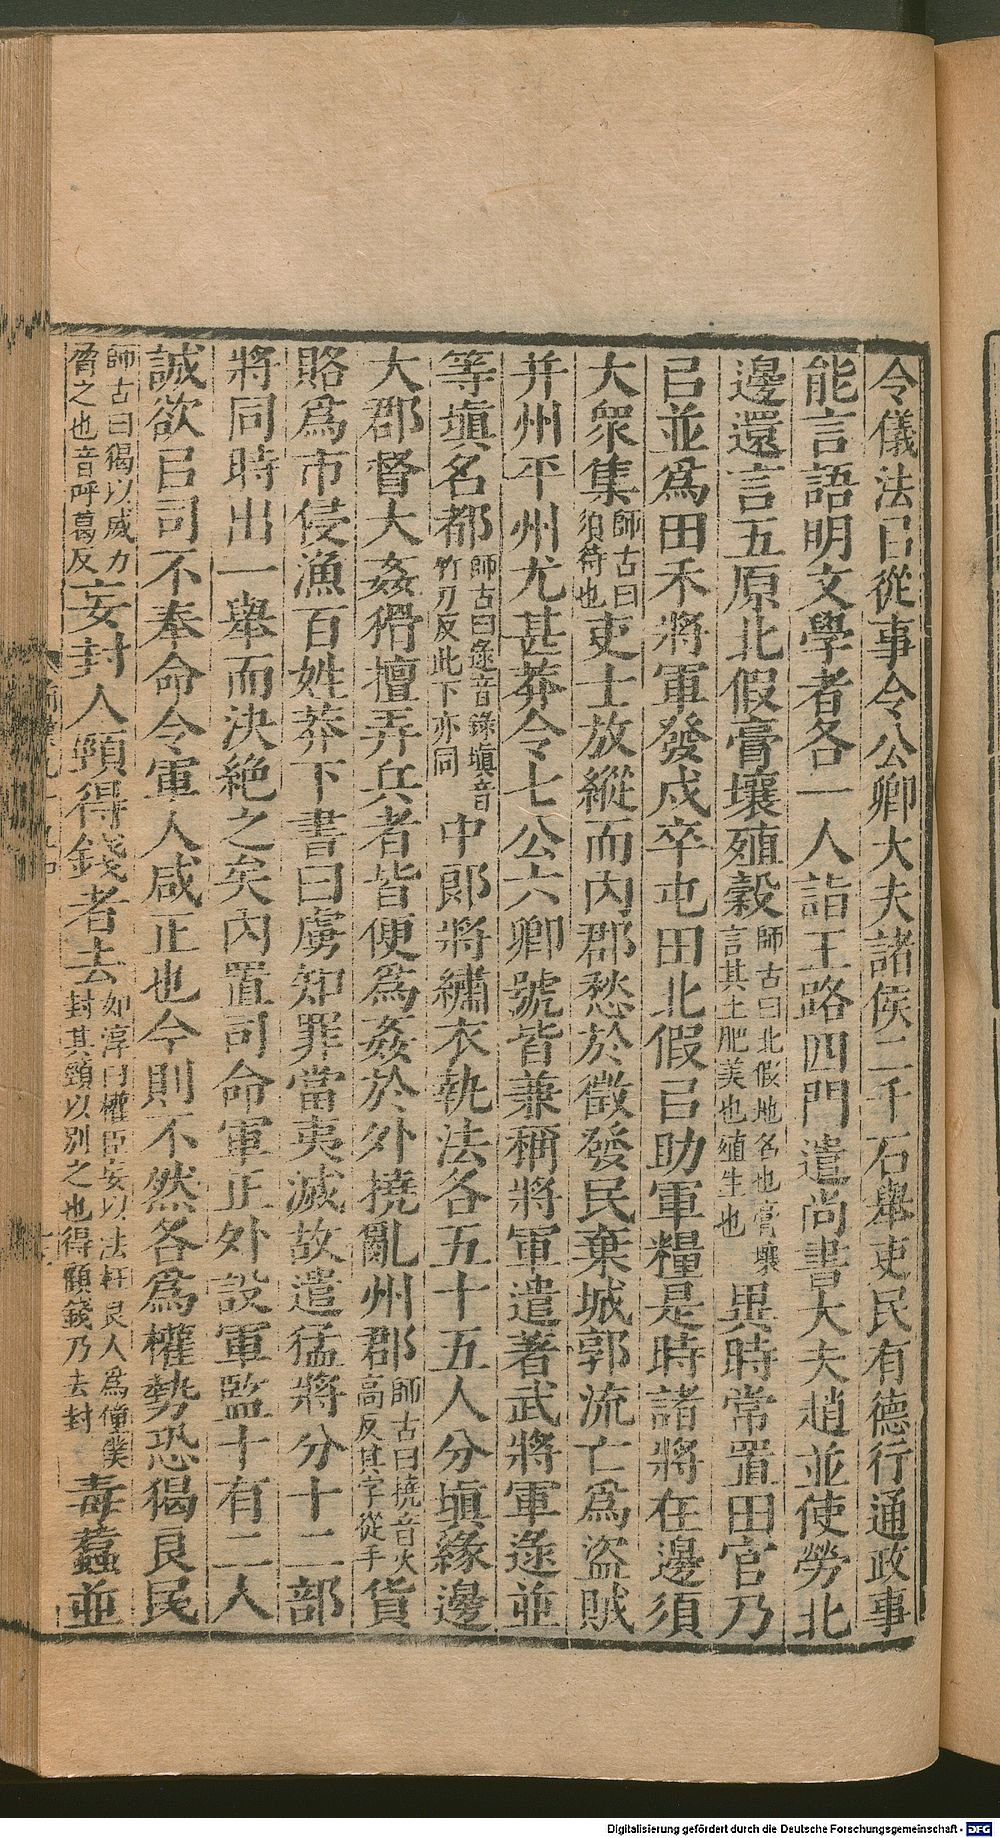 令儀法㠯從事令公卿大夫諸侯二千石舉吏民有德行通政事
能言語明文學者各一人詣王路四門遣尚書大夫趙並使勞北
邊還言五原北假膏壤殖穀師古曰北假地名也膏壤言其土肥美也殖生也異時常置田官乃
㠯並爲田禾將軍發戍卒屯田北假㠯助軍糧是時諸將在邊須
大衆集師古曰須待也吏士放縱而内郡愁於徵發民棄城郭流亡爲盜賊
并州平州尤甚莽令七公六卿號皆兼稱將軍遣著武將軍逯並
等塡名都師古曰逯音錄塡音竹刃反此下亦同中郎將繡衣執法各五十五人分塡緣邊
大郡督大姦猾擅弄兵者皆便爲姦於外撓亂州郡師古曰撓音火高反其字從手貨
賂爲市侵漁百姓莽下書曰虜知罪當夷滅故遣猛將分十二部
將同時出一舉而決絕之矣内置司命軍正外設軍監十有二人
誠欲㠯司不奉命令軍人咸正也今則不然各爲權勢恐猲良民
師古曰猲以威力脅之也音呼葛反妄封人頸得錢者去如淳曰權臣妄以法枉良人爲僮僕封其頸以別之也得顧錢乃去封毒蠚並
Digitalisierung gefördert durch die Deutsche Forschungsgemeinschaft - DFG